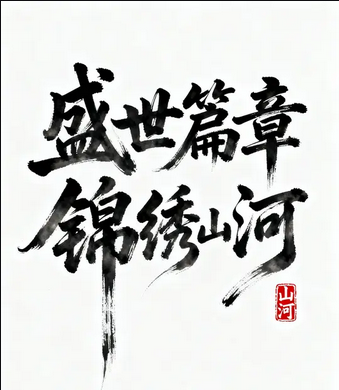 盛世篇章
锦绣山河
山河